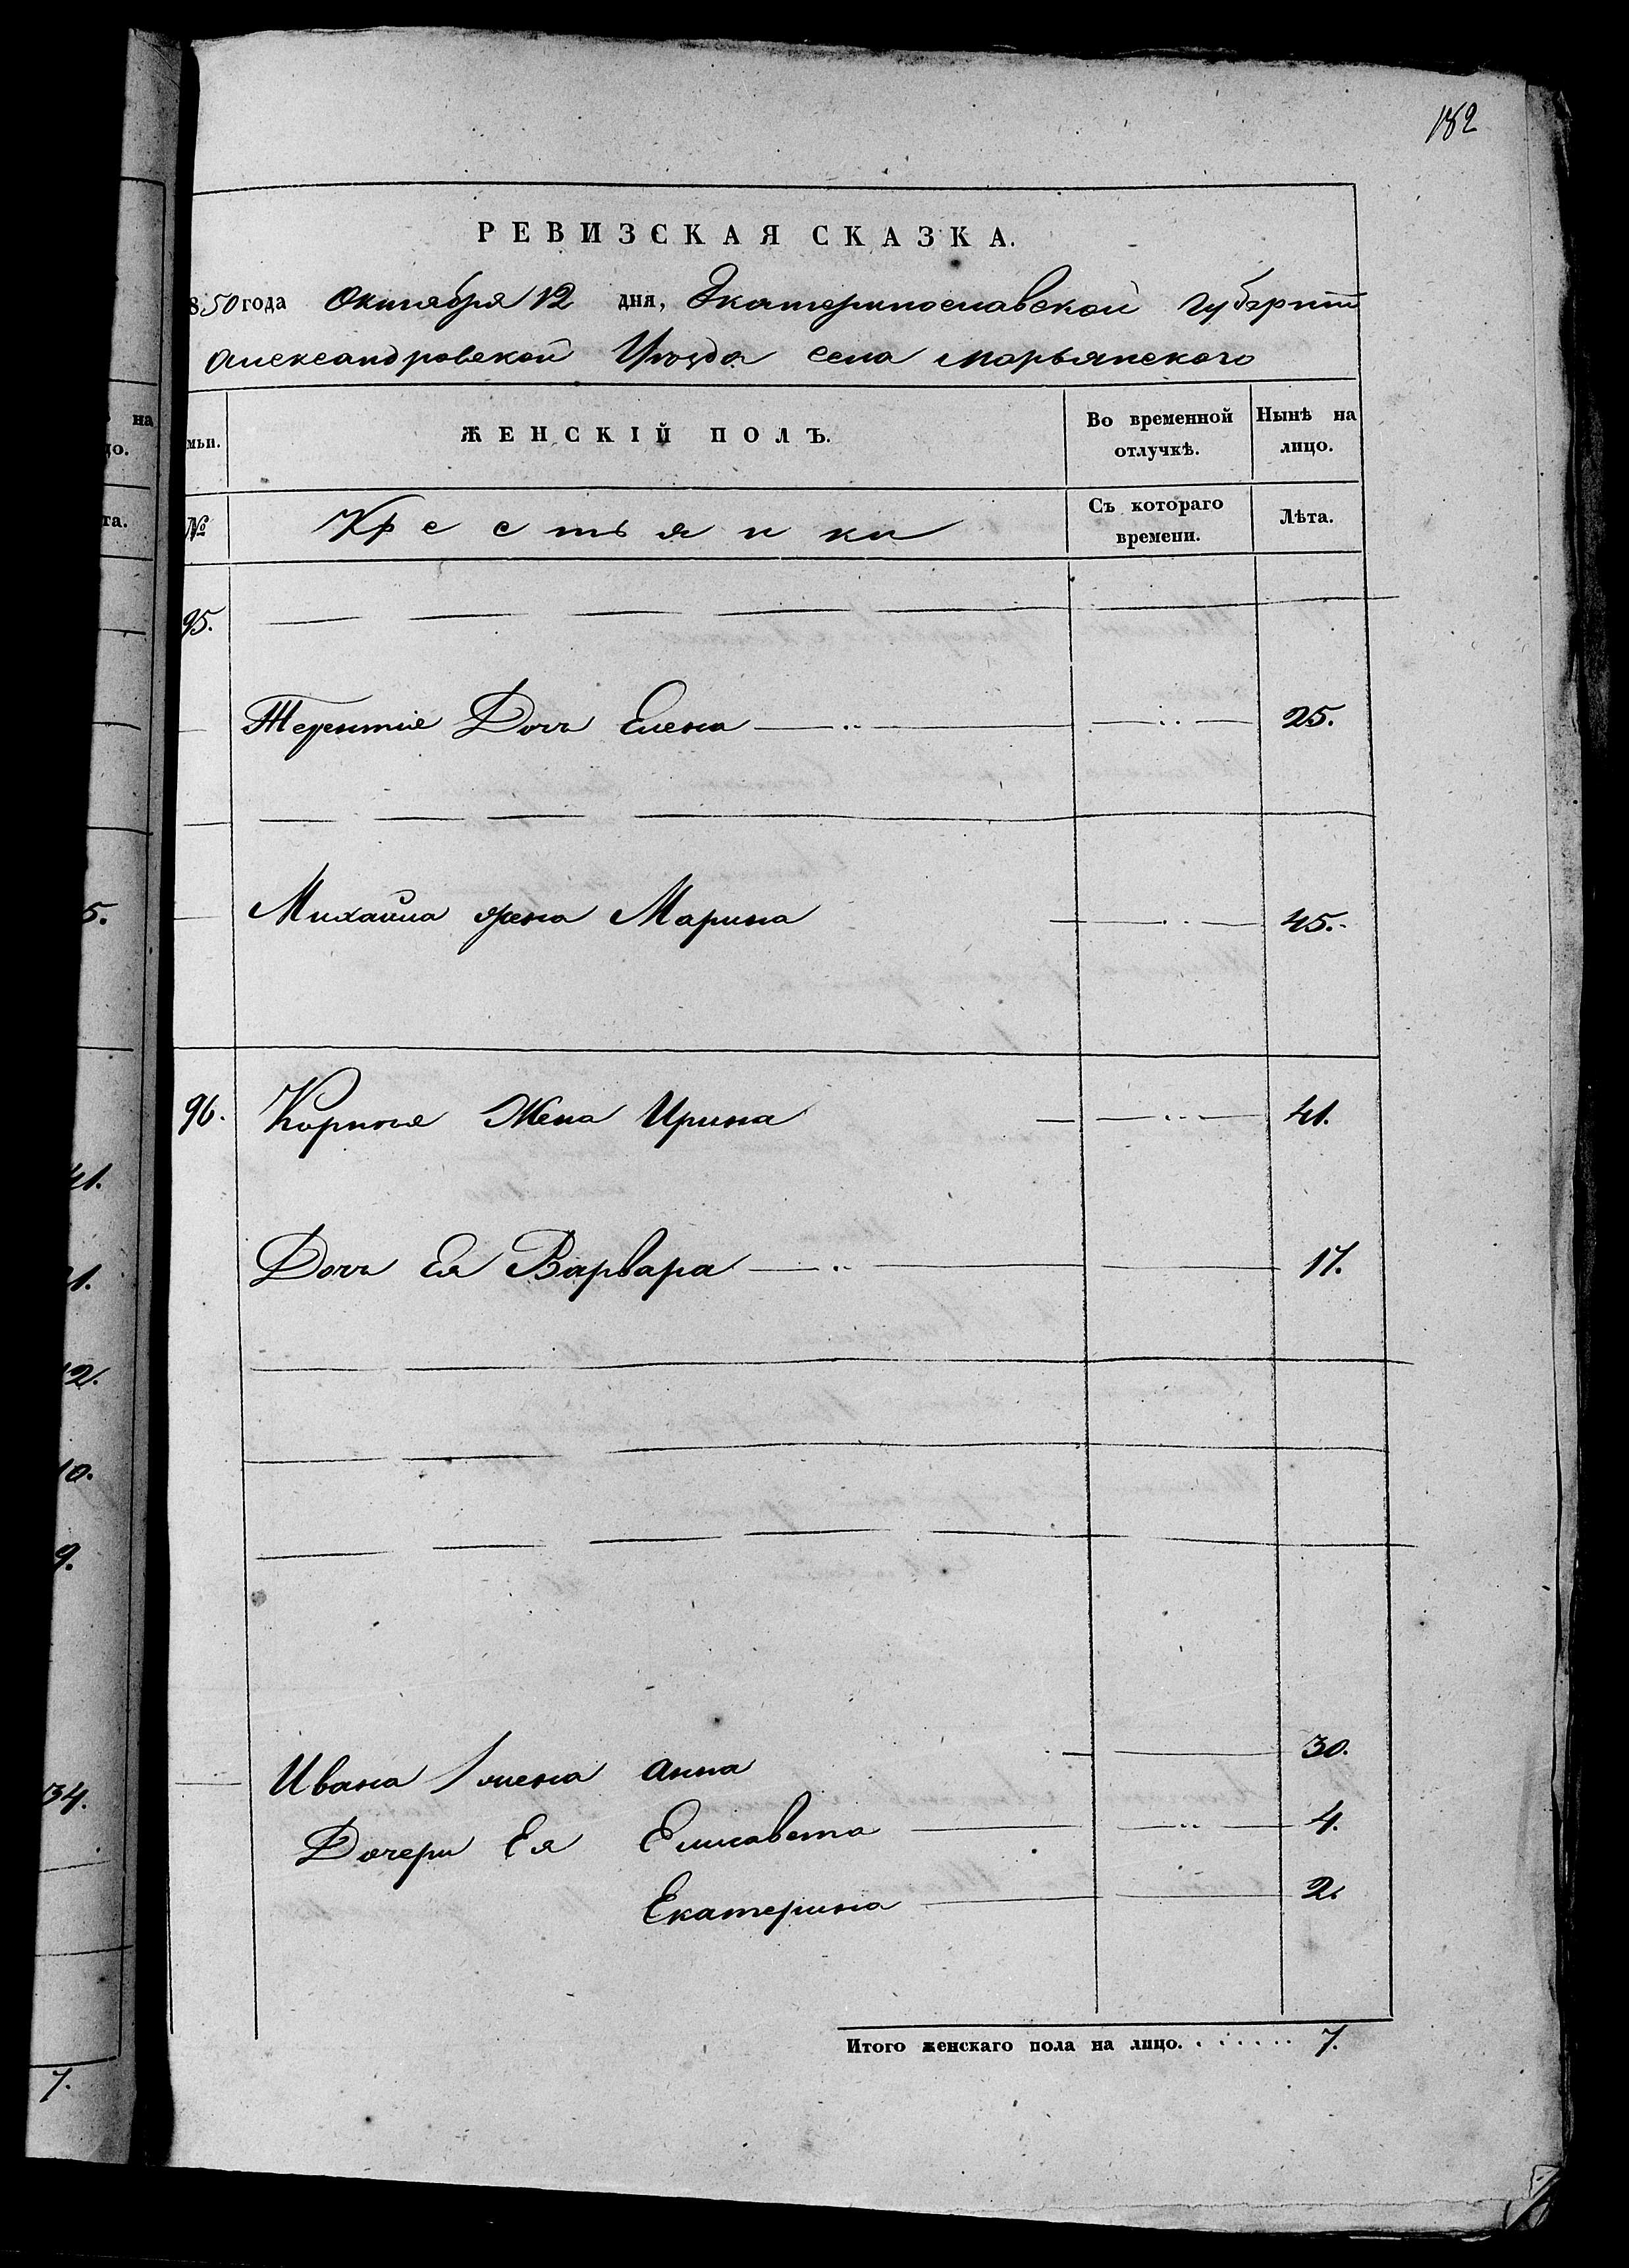 182
РЕВИЗСКАЯ СКАЗКА.
850 года Октября 12 дня, Екатеринославской губернiи
Александровской Уѣзда села Марьянского
мьи. ЖЕНСКІЙ ПОЛЪ. Во временной отлучкѣ. Нынѣ на лицо.
№ Крестьянки Съ котораго времени. Лѣта.
95.
Терентіе Дочь Елена 25.
Михаила жена Марина 45.
96. Корнея Жена Ирина 41.
Дочь Ея Варвара 17.
Ивана жена Анна 30.
Дочери Ея Елисавета 4.
Екатерина 2.
Итого женскаго пола на лицо. 7.
на
го.
та.
5.
41.
21.
12.
10.
9.
34.
7.